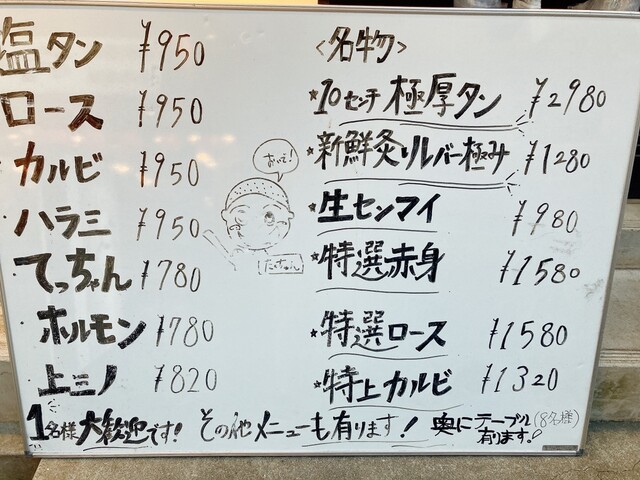 塩タン ¥950
ロース ¥950
カルビ ¥950
ハラミ ¥950
てっちゃん ¥780
ホルモン ¥780
上ミノ ¥820
<名物>
★10センチ極厚タン ¥2980
★新鮮炙りレバー極み ¥1280
★生センマイ ¥980
★特選赤身 ¥1580
★特選ロース ¥1580
★特上カルビ ¥1320
おいで!
たけちゃん
1名様大歓迎です! その他メニューも有ります! 奥にテーブル(8名様)
有ります!